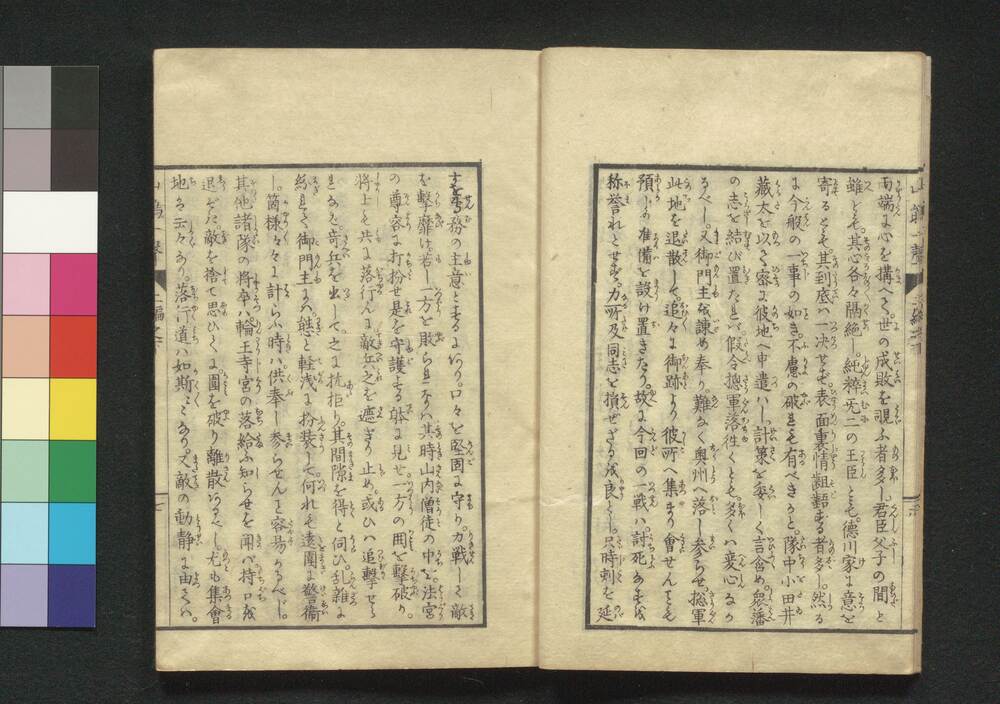 両端に心を搆へて。世の成敗を覗ふ者多し。君臣父子の間と
雖ども。其心各々隔絶し。純粋无二の王臣とも。徳川家に意を
寄るとも。其到底は一决せず。表面裏情齟齬する者多し。然る
に今般の一事の如き。不慮の破れも有べきかと。隊中小田井
藏太を以て密に彼地へ申遣はし。計策を委しく言含め。衆藩
の志を結び置たれば。假令摠軍落徃くとも。多くは変心なか
るべし。又御門主を諌め奉り。難なく奥州へ落し参らせ。摠軍
此地を退散して。追々に御跡より彼所へ集まり會せんとも
預じめ准備を設け置きたり。故に今回の一戦は。討死するを
称誉れとせず。力所及同志を損ぜざるを良とし。只時刻を延
するを務の主意とするにあり。口々を堅固に守り。力戦して敵
を撃靡け。若し一方を敗られなば。其時山内僧徒の中を。法宮
の尊容に打扮せ是を守護する体に見せ。一方の囲を撃破り。
将士も共に落行んに敵兵之を遮ぎり止め。或ひは追撃せら
れなば。奇兵を出して。之に抗拒り。其間隙を得と伺ひ。乱雑に
紛れて御門主には。態と軽浅に扮装して。何れも遠圍に警衛
し。箇様々々に計らふ時は。供奉し参らせんこと容易かるべし。
其他諸隊の将卒は輪王寺宮の落給ふ知らせを聞ば持口を
退ぞき敵を捨て思ひ〱に圍を破り離散なるべし。尤も集會
地は云々なり。落行道は如斯々々なり。又敵の動静に由ては。